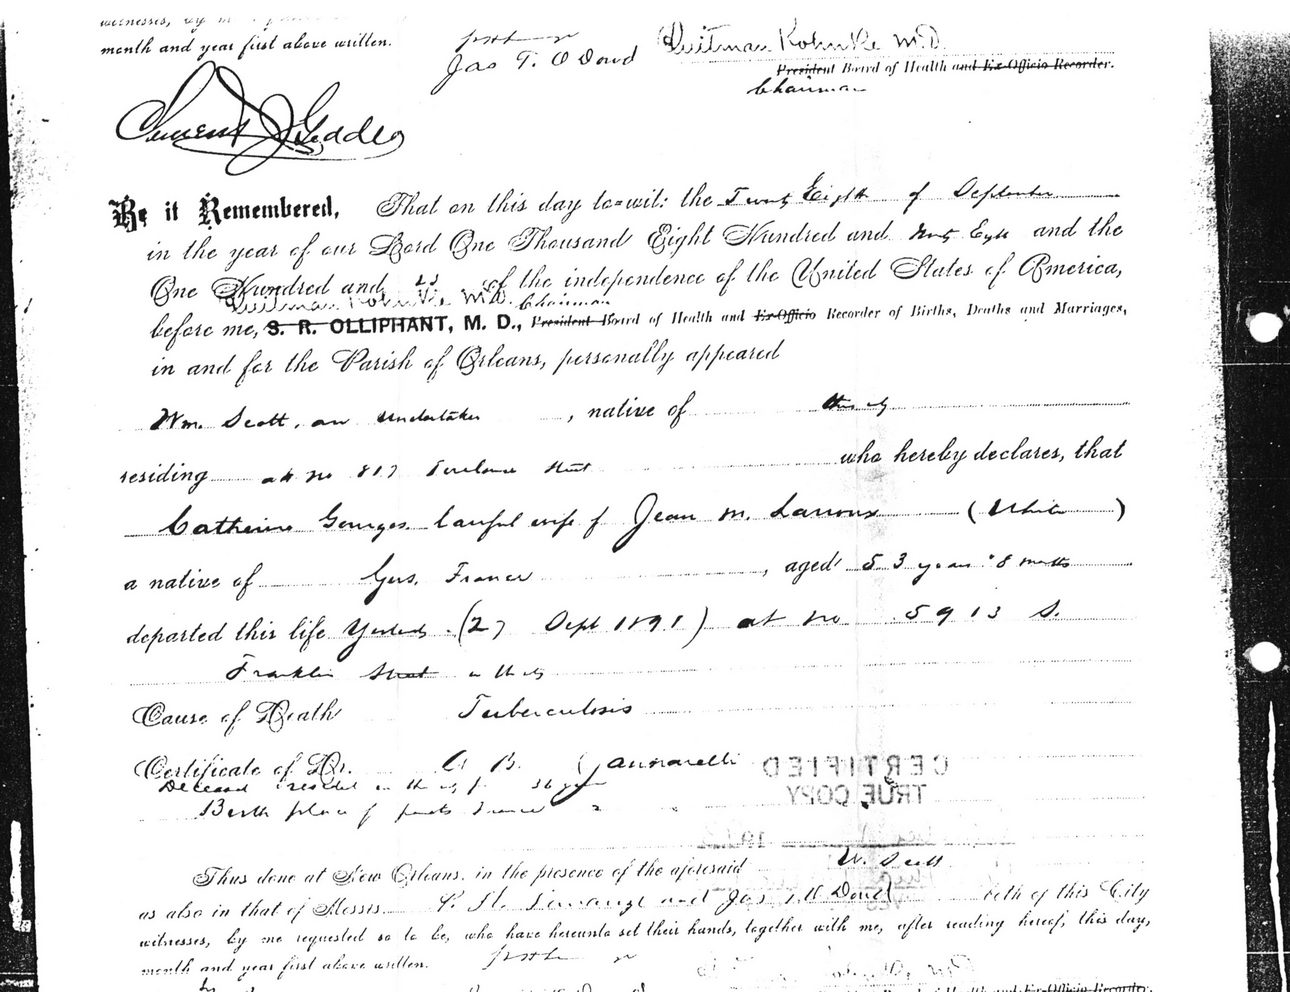 witnesses, by me
month and year first above written.
Jas T. O Dowd
Quitman Kohnke M.D.
President Board of Health and Ex-Officio Recorder.
Chairman
Clement J Geddes
Be it Remembered, That on this day to=wit: the Twenty Eighth of September
in the year of our Lord One Thousand Eight Hundred and Ninty Eight and the
One Hundred and 23 of the independence of the United States of America,
Quitman Kohnke M.D. Chairman
before me, S. R. OLLIPHANT, M. D., President Board of Health and Ex-Officio Recorder of Births, Deaths and Marriages,
in and for the Parish of Orleans, personally appeared
Wm. Scott, an undertaker, native of this city
residing at no 817 Toulouse Street who hereby declares, that
Catherine Georges lawful wife of Jean M. Larroux (White)
a native of Gers, France, aged 53 years 8 months
departed this life Yesterday (27 Sept 1898) at no 5913 S.
Franklin Street in this city
Cause of Death Tuberculosis
Certificate of Dr. A B
Deceased resided in this city for 36 years
Birth place of parents France
CERTIFIED
TRUE COPY
Thus done at New Orleans, in the presence of the aforesaid W. Scott
as also in that of Messrs. P. H. Lanauze and Jas T. O Dowd both of this City
witnesses, by me requested so to be, who have hereunto set their hands, together with me, after reading hereof, this day,
month and year first above written.
Health and Ex-Officio Recorder.